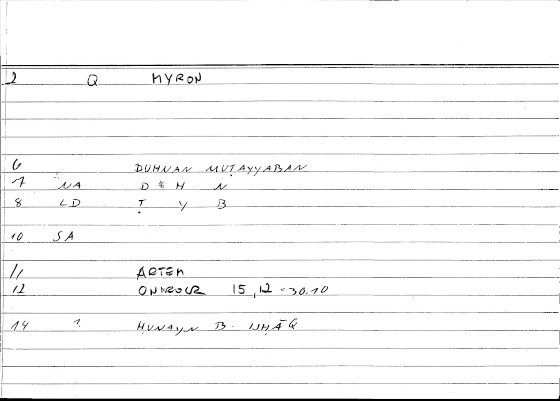 2 Q MYRON
6 DUHNAN MUṬAYYABAN
7 NA D * H N
8 LD Ṭ Y B
10 SA
11 ARTEM
12 ONIROCR 15,12 = 30.10
14 1. ḤUNAYN B. ISḤĀQ